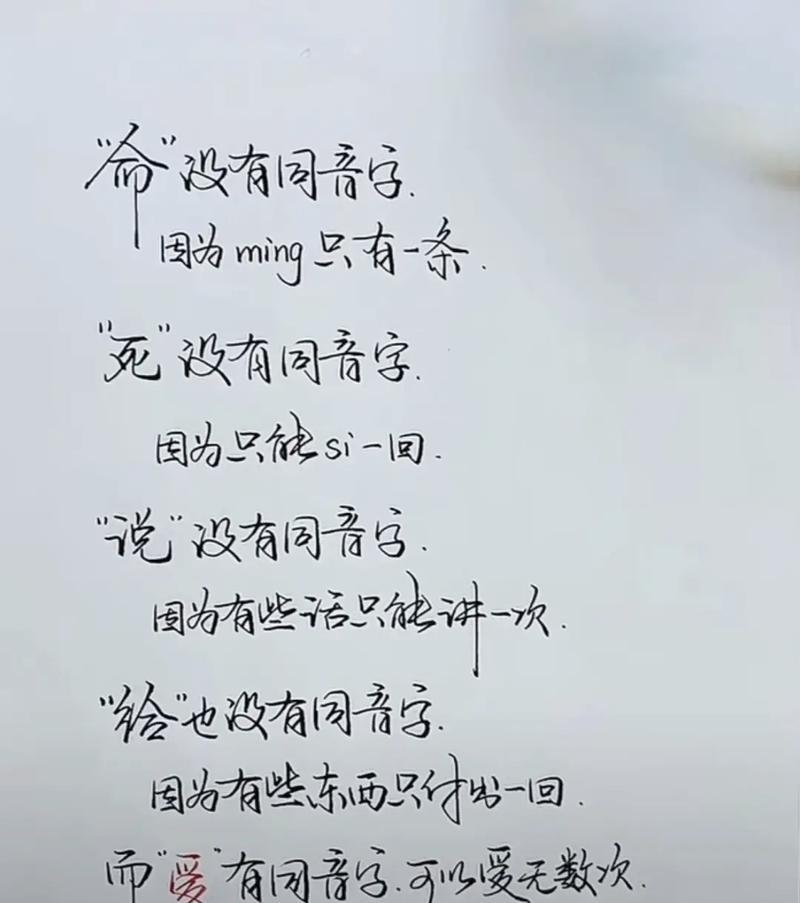 “命”没有同音字.
因为ming只有一条.
“死”没有同音字.
因为只能si一回.
“说”没有同音字.
因为有些话只能讲一次.
“给”也没有同音字.
因为有些东西只付出一回.
而“爱”有同音字.可以爱无数次.